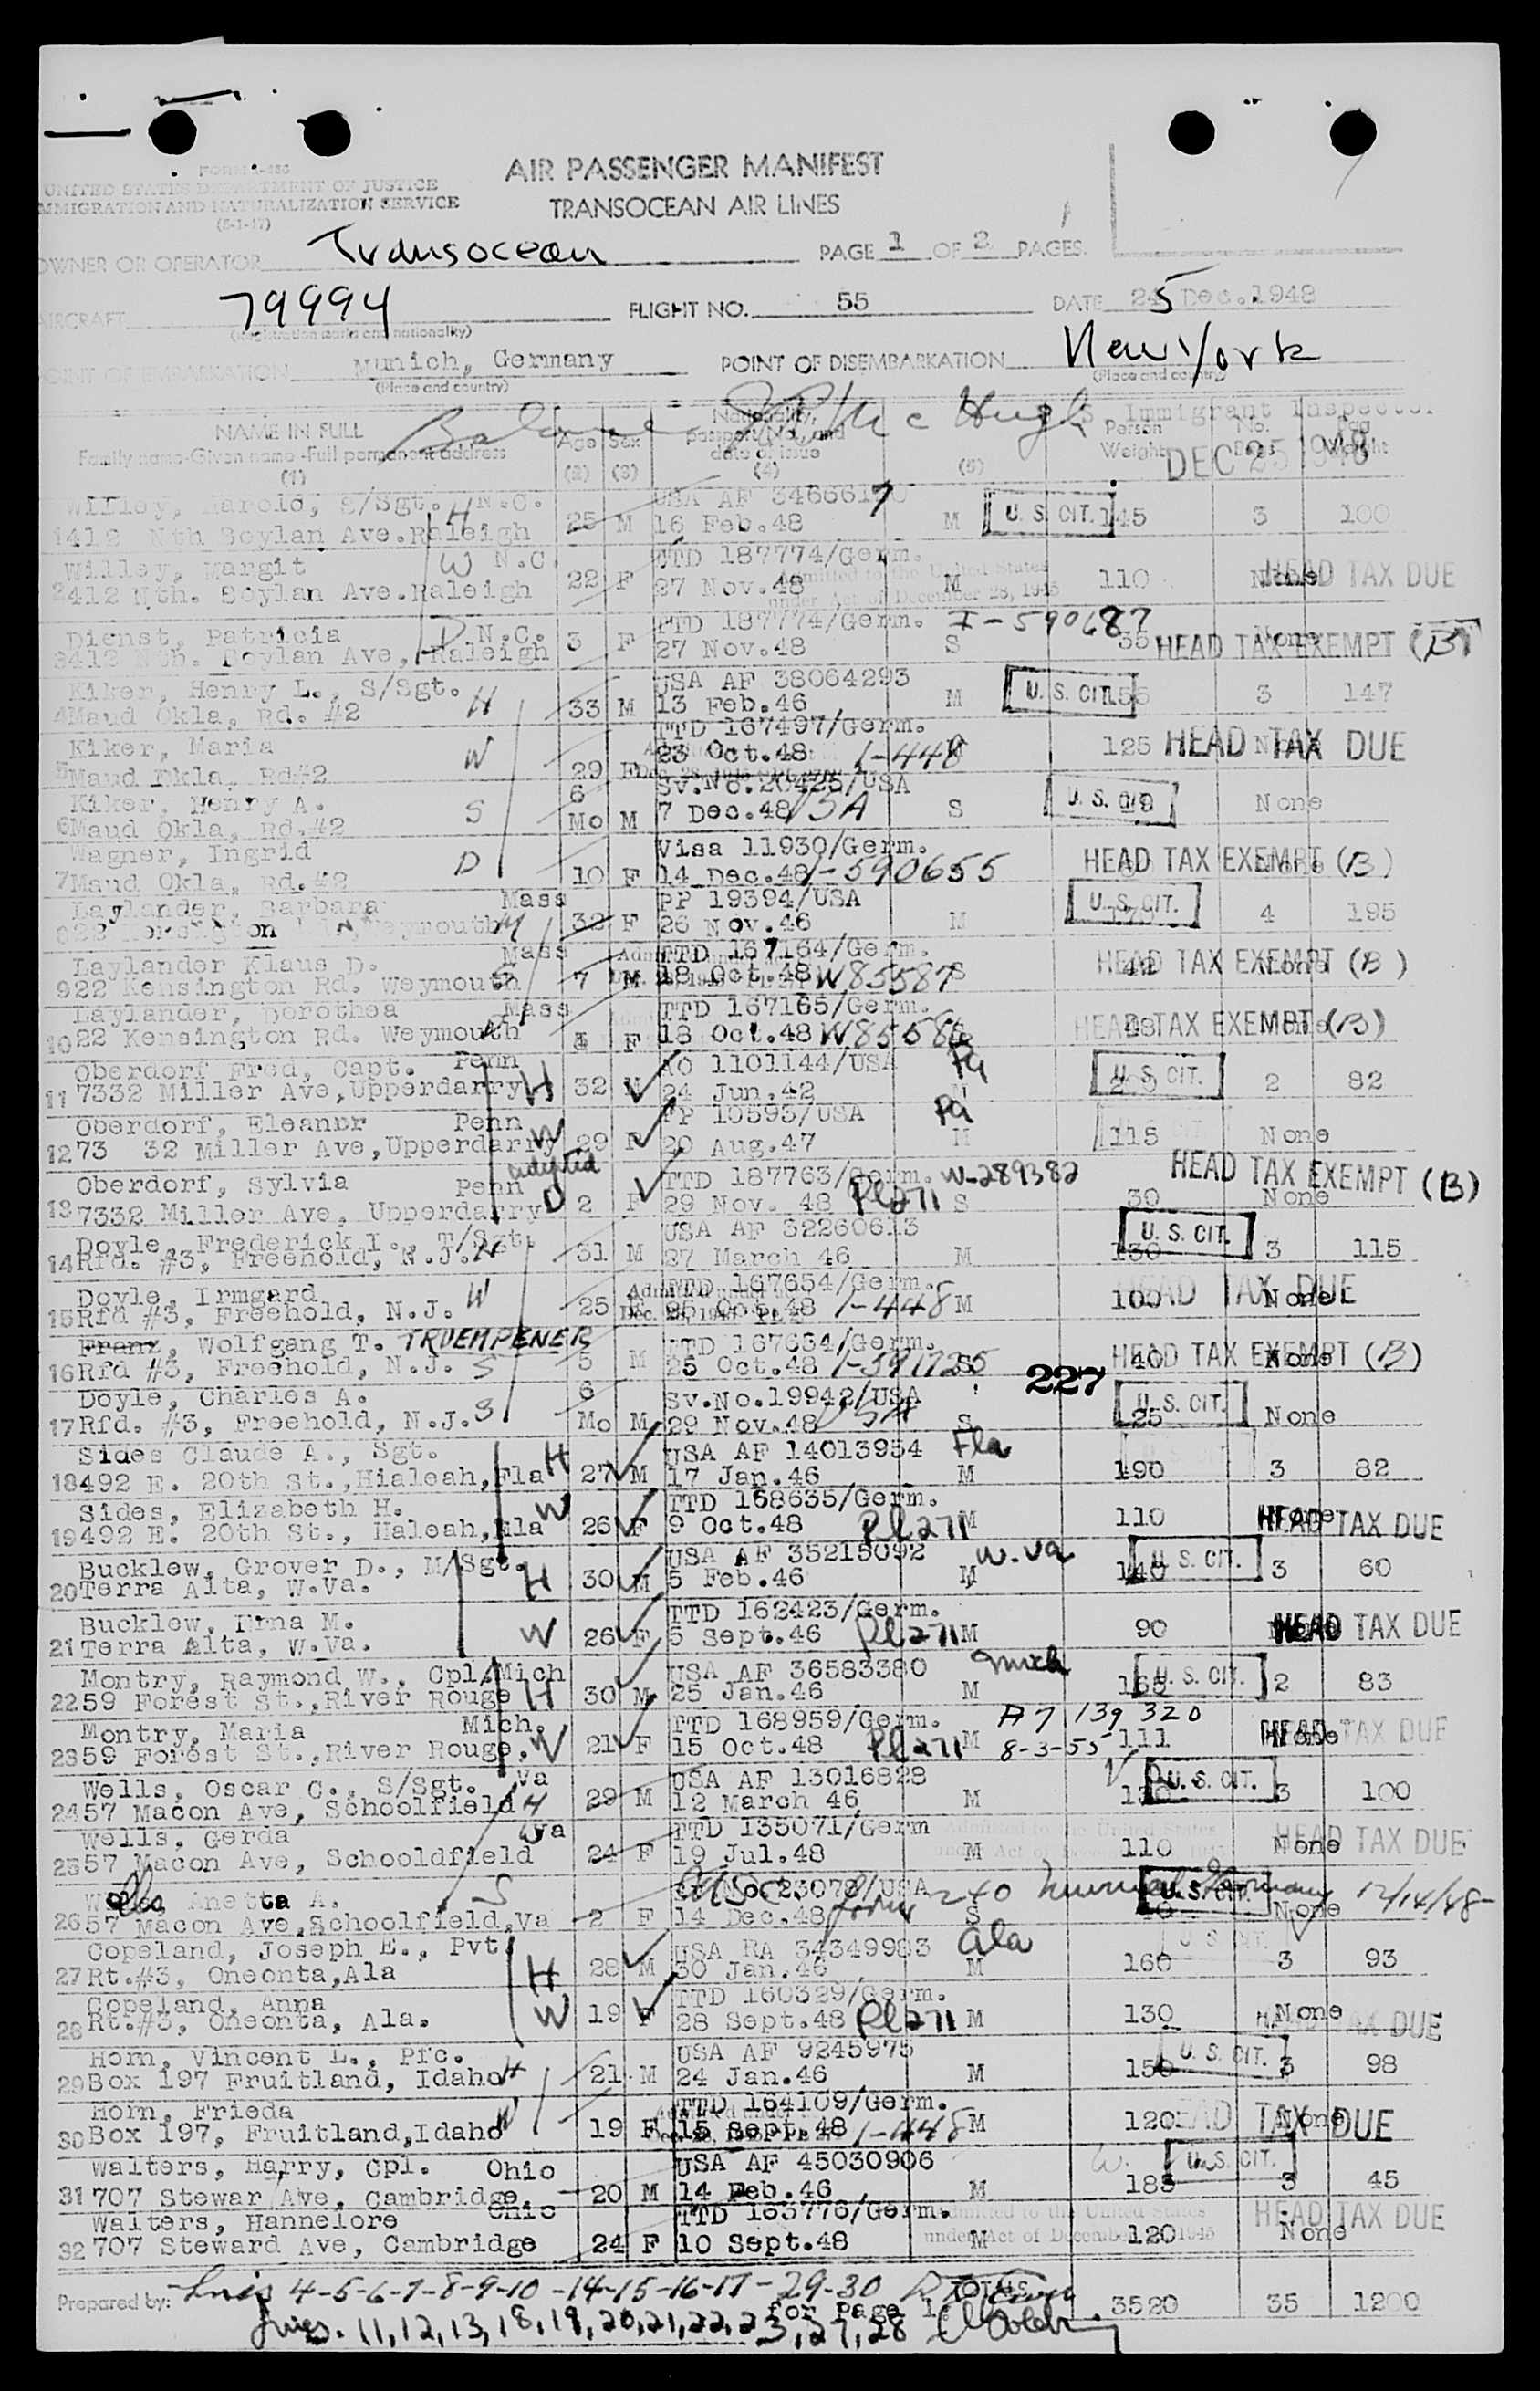 FORM I-466
UNITED STATES DEPARTMENT OF JUSTICE
IMMIGRATION AND NATURALIZATION SERVICE
(5-1-47)
AIR PASSENGER MANIFEST
TRANSOCEAN AIR LINES
OWNER OR OPERATOR Transocean PAGE 1 OF 2 PAGES.
AIRCRAFT 79994 FLIGHT NO. 55 DATE 25 Dec. 1948
(Registration marks and nationality)
POINT OF EMBARKATION Munich, Germany POINT OF DISEMBARKATION New York
(Place and country) (Place and country)
Mc Hugh U.S. Immigrant Inspector
NAME IN FULL Age Sex Nationality, passport No. and date of issue Person Weight No. Bags Bag Weight
Family name-Given name-Full permanent address
(1) (2) (3) (4) (5)
DEC 25 1948
Willey, Harold, S/Sgt. H N.C. USA AF 34666197
1 412 Nth Boylan Ave. Raleigh 25 M 16 Feb.48 M U.S. CIT. 145 3 100
Willey, Margit W N.C. TTD 187774/Germ. Admitted to the United States
2 412 Nth. Boylan Ave. Raleigh 22 F 27 Nov.48 M under Act of December 28, 1945 110 None HEAD TAX DUE
Dienst, Patricia D N.C. TTD 187774/Germ. I-590687
3 412 Nth. Boylan Ave, Raleigh 3 F 27 Nov.48 S 35 None HEAD TAX EXEMPT (B)
Kiker, Henry L., S/Sgt. H USA AF 38064293
4 Maud Okla, Rd. #2 33 M 13 Feb.46 M U.S. CIT. 155 3 147
Kiker, Maria W TTD 167497/Germ.
5 Maud Okla, Rd#2 29 F 23 Oct.48 1-448 M 125 None HEAD TAX DUE
Kiker, Henry A. S 6 Sv.No.20425/USA
6 Maud Okla, Rd.#2 Mo M 7 Dec.48 USA S U.S. CIT. None
Wagner, Ingrid D Visa 11930/Germ.
7 Maud Okla, Rd.#2 10 F 14 Dec.48 I-590655 HEAD TAX EXEMPT (B)
Laylander, Barbara Mass PP 19394/USA
8 22 Kensington Rd, Weymouth M 32 F 26 Nov.46 M U.S. CIT. 4 195
Laylander Klaus D. Mass TTD 167164/Germ.
9 22 Kensington Rd. Weymouth S 7 M 18 Oct.48 W85587 S 42 None HEAD TAX EXEMPT (B)
Laylander, Dorothea Mass TTD 167165/Germ.
10 22 Kensington Rd. Weymouth F 18 Oct.48 W85586 None HEAD TAX EXEMPT (B)
Oberdorf Fred, Capt. Penn AO 1101144/USA Pa
11 7332 Miller Ave, Upperdarry H 32 M 24 Jun.42 M U.S. CIT. 2 82
Oberdorf, Eleanor Penn PP 10593/USA Pa
12 73 32 Miller Ave, Upperdarry W 29 F 20 Aug.47 M 115 None
adopted
Oberdorf, Sylvia Penn TTD 187763/Germ. W-289382
13 7332 Miller Ave, Upperdarry D 2 F 29 Nov. 48 PL271 S 30 None HEAD TAX EXEMPT (B)
Doyle, Frederick I., T/Sgt. USA AF 32260613
14 Rfd. #3, Freehold, N.J. H 31 M 27 March 46 M U.S. CIT. 130 3 115
Doyle, Irmgard W TTD 167654/Germ.
15 Rfd #3, Freehold, N.J. 25 F 25 Oct.48 1-448 M 100 None HEAD TAX DUE
Franz, Wolfgang T. TRUEMPENER TTD 167634/Germ.
16 Rfd #3, Freehold, N.J. S 5 M 25 Oct.48 I-591725 S 40 None HEAD TAX EXEMPT (B)
227
Doyle, Charles A. 6 Sv.No.19942/USA
17 Rfd. #3, Freehold, N.J. S Mo M 29 Nov.48 USA S U.S. CIT. 25 None
Sides Claude A., Sgt. USA AF 14013954 Fla
18 492 E. 20th St., Hialeah, Fla H 27 M 17 Jan.46 M 190 3 82
Sides, Elizabeth H. TTD 168635/Germ.
19 492 E. 20th St., Haleah, Fla W 26 F 9 Oct.48 PL271 M 110 None HEAD TAX DUE
Bucklew, Grover D., M/Sgt. USA AF 35215092 W.Va
20 Terra Alta, W.Va. H 30 M 5 Feb.46 M U.S. CIT. 140 3 60
Bucklew, Erna M. TTD 162423/Germ.
21 Terra Alta, W.Va. W 26 F 5 Sept.46 PL271 M 90 None HEAD TAX DUE
Montry, Raymond W., Cpl. Mich USA AF 36583380 Mich
22 59 Forest St., River Rouge H 30 M 25 Jan.46 M U.S. CIT. 165 2 83
Montry, Maria Mich. TTD 168959/Germ. A7 139 320
23 59 Forest St., River Rouge. W 21 F 15 Oct.48 PL271 M 8-3-55 111 None HEAD TAX DUE
Wells, Oscar C., S/Sgt. Va USA AF 13016828
24 57 Macon Ave, Schoolfield H 29 M 12 March 46 M U.S. CIT. 3 100
Wells, Gerda W Va TTD 135071/Germ Admitted to the United States
25 57 Macon Ave, Schooldfield 24 F 19 Jul.48 M 110 None HEAD TAX DUE
Wells, Anetta A. S Sv.No.23078/USA form 240 Germany 12/14/48
26 57 Macon Ave, Schoolfield, Va 2 F 14 Dec.48 S U.S. CIT. None
Copeland, Joseph E., Pvt. USA RA 34349983 Ala
27 Rt.#3, Oneonta, Ala H 28 M 30 Jan.46 M U S CIT. 160 3 93
Copeland, Anna TTD 160329/Germ.
28 Rt.#3, Oneonta, Ala. W 19 F 28 Sept.48 PL271 M 130 None HEAD TAX DUE
Horn, Vincent L., Pfc. USA AF 9245975
29 Box 197 Fruitland, Idaho H 21 M 24 Jan.46 M U.S. CIT. 150 3 98
Horn, Frieda TTD 164109/Germ.
30 Box 197, Fruitland, Idaho W 19 F 15 Sept.48 1-448 M 120 None HEAD TAX DUE
Walters, Harry, Cpl. Ohio USA AF 45030906
31 707 Stewar Ave, Cambridge 20 M 14 Feb.46 M U.S. CIT. 185 3 45
Walters, Hannelore Ohio TTD 163776/Germ. Admitted to the United States
32 707 Steward Ave, Cambridge 24 F 10 Sept.48 M under Act of December 1945 120 None HEAD TAX DUE
Prepared by: Lines 4-5-6-7-8-9-10-14-15-16-17-29-30
for page 1 3520 35 1200
Lines. 11, 12, 13, 18, 19, 20, 21, 22, 23, 27, 28